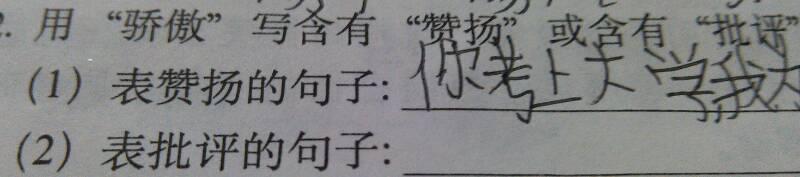 2. 用“骄傲”写含有“赞扬”或含有“批评”
(1) 表赞扬的句子:你考上大学,我太
(2) 表批评的句子: